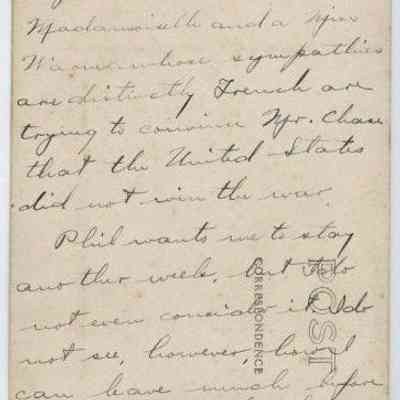 Madamoiselle and a Miss
Warner whose sympathies
are distinctly French are
trying to convince Mr. Chase
that the United States
did not win the war.
Phil wants me to stay
another week, but I do
not even consider it. I do
not see, however, how I
can leave much before
POST
CORRESPONDENCE